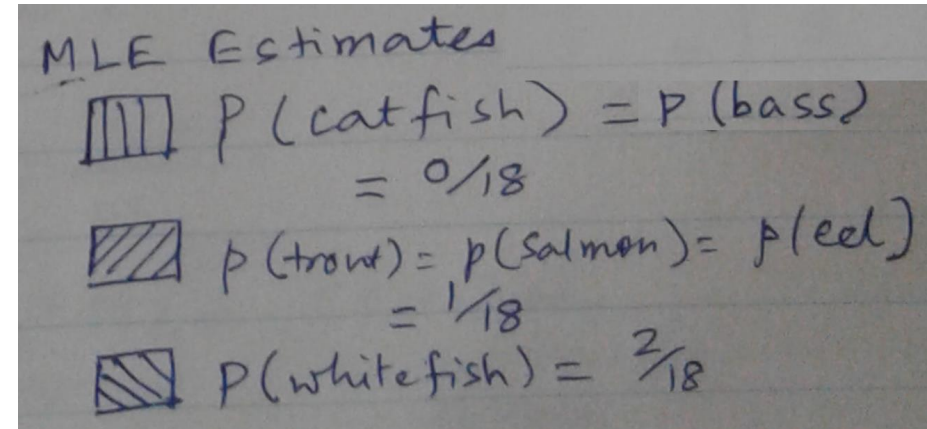 MLE Estimates
P (catfish) = P (bass)
= 0/18
p (trout) = p (salmon) = p (eel)
= 1/18
P (whitefish) = 2/18